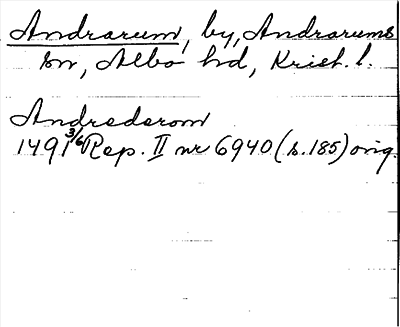 Andrarum, by, Andrarums
sn, Albo hd, Krist. l.
Andradarom
1491 3/6 Rep. II nr 6940 (s. 185) orig.